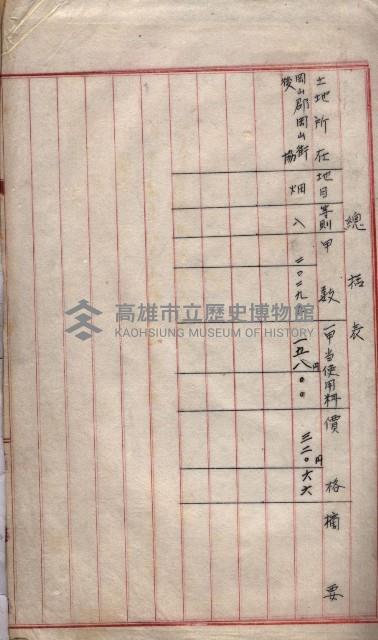 總括表
土地所在 地目 等則 甲數 一甲当使用料 價格 摘要
岡山郡岡山街後協 畑 八 二〇二九五 一五八円〇〇 三二〇円六六
高雄市立歷史博物館
KAOHSIUNG MUSEUM OF HISTORY